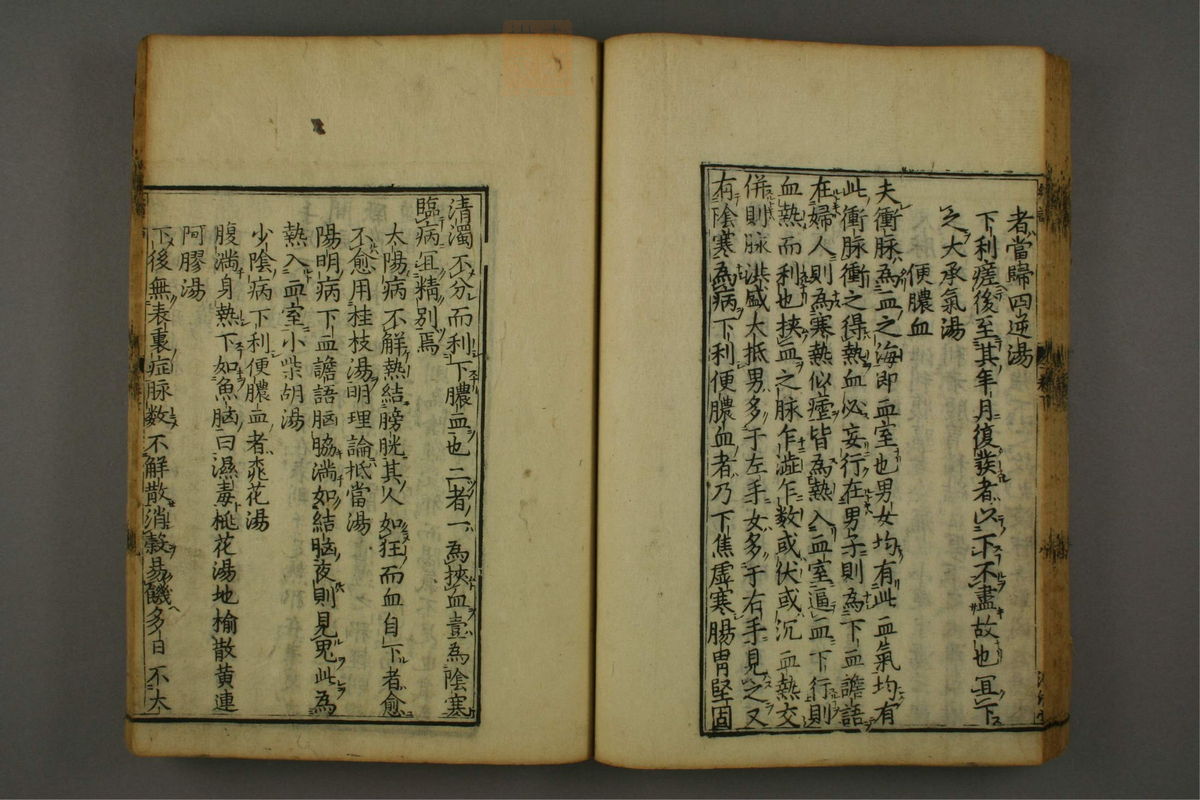 者當歸四逆湯
下利瘥後至其年月復發者以下不盡故也宜下
之大承氣湯
便膿血
夫衝脉為血之海即血室也男女均有此血氣均有
此衝脉衝之得熱血必妄行在男子則為下血譫語
在婦人則為寒熱似瘧皆為熱入血室逼血下行則
血熱而利也挾血之脉乍澁乍数或伏或沉血熱交
併則脉洪盛大抵男多于左手女多于右手見之又
有陰寒為病下利便膿血者乃下焦虛寒腸胃堅固
清濁不分而利下膿血也二者一為挾血壹為陰寒
臨病宜精別焉
太陽病不解熱結膀胱其人如狂而血自下者愈
不愈用桂枝湯明理論抵當湯
陽明病下血譫語脳脇満如結脳夜則見鬼此為
熱入血室小柴胡湯
少陰病下利便膿血者桃花湯
腹満身熱下如魚脳曰濕毒桃花湯地榆散黃連
阿膠湯
下後無表裏症脉数不解散消穀易饑多日不大